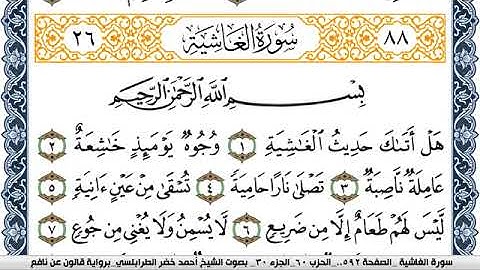 ٨٨ سُورَةُ الْغَاشِيَةِ ٢٦
بِسْمِ اللَّهِ الرَّحْمَٰنِ الرَّحِيمِ
هَلْ أَتَىٰكَ حَدِيثُ الْغَٰشِيَةِ ١ وُجُوهٌ يَوْمَئِذٍ خَٰشِعَةٌ ٢
عَامِلَةٌ نَّاصِبَةٌ ٣ تَصْلَىٰ نَارًا حَامِيَةً ٤ تُسْقَىٰ مِنْ عَيْنٍ ءَانِيَةٍ ٥
لَّيْسَ لَهُمْ طَعَامٌ إِلَّا مِن ضَرِيعٍ ٦ لَّا يُسْمِنُ وَلَا يُغْنِي مِن جُوعٍ ٧
سورة الغاشية _الصفحة ٥٩٢... الحزب ٦٠_الجزء ٣٠_ بصوت الشيخ أحمد خضر الطرابلسي_برواية قالون عن نافع